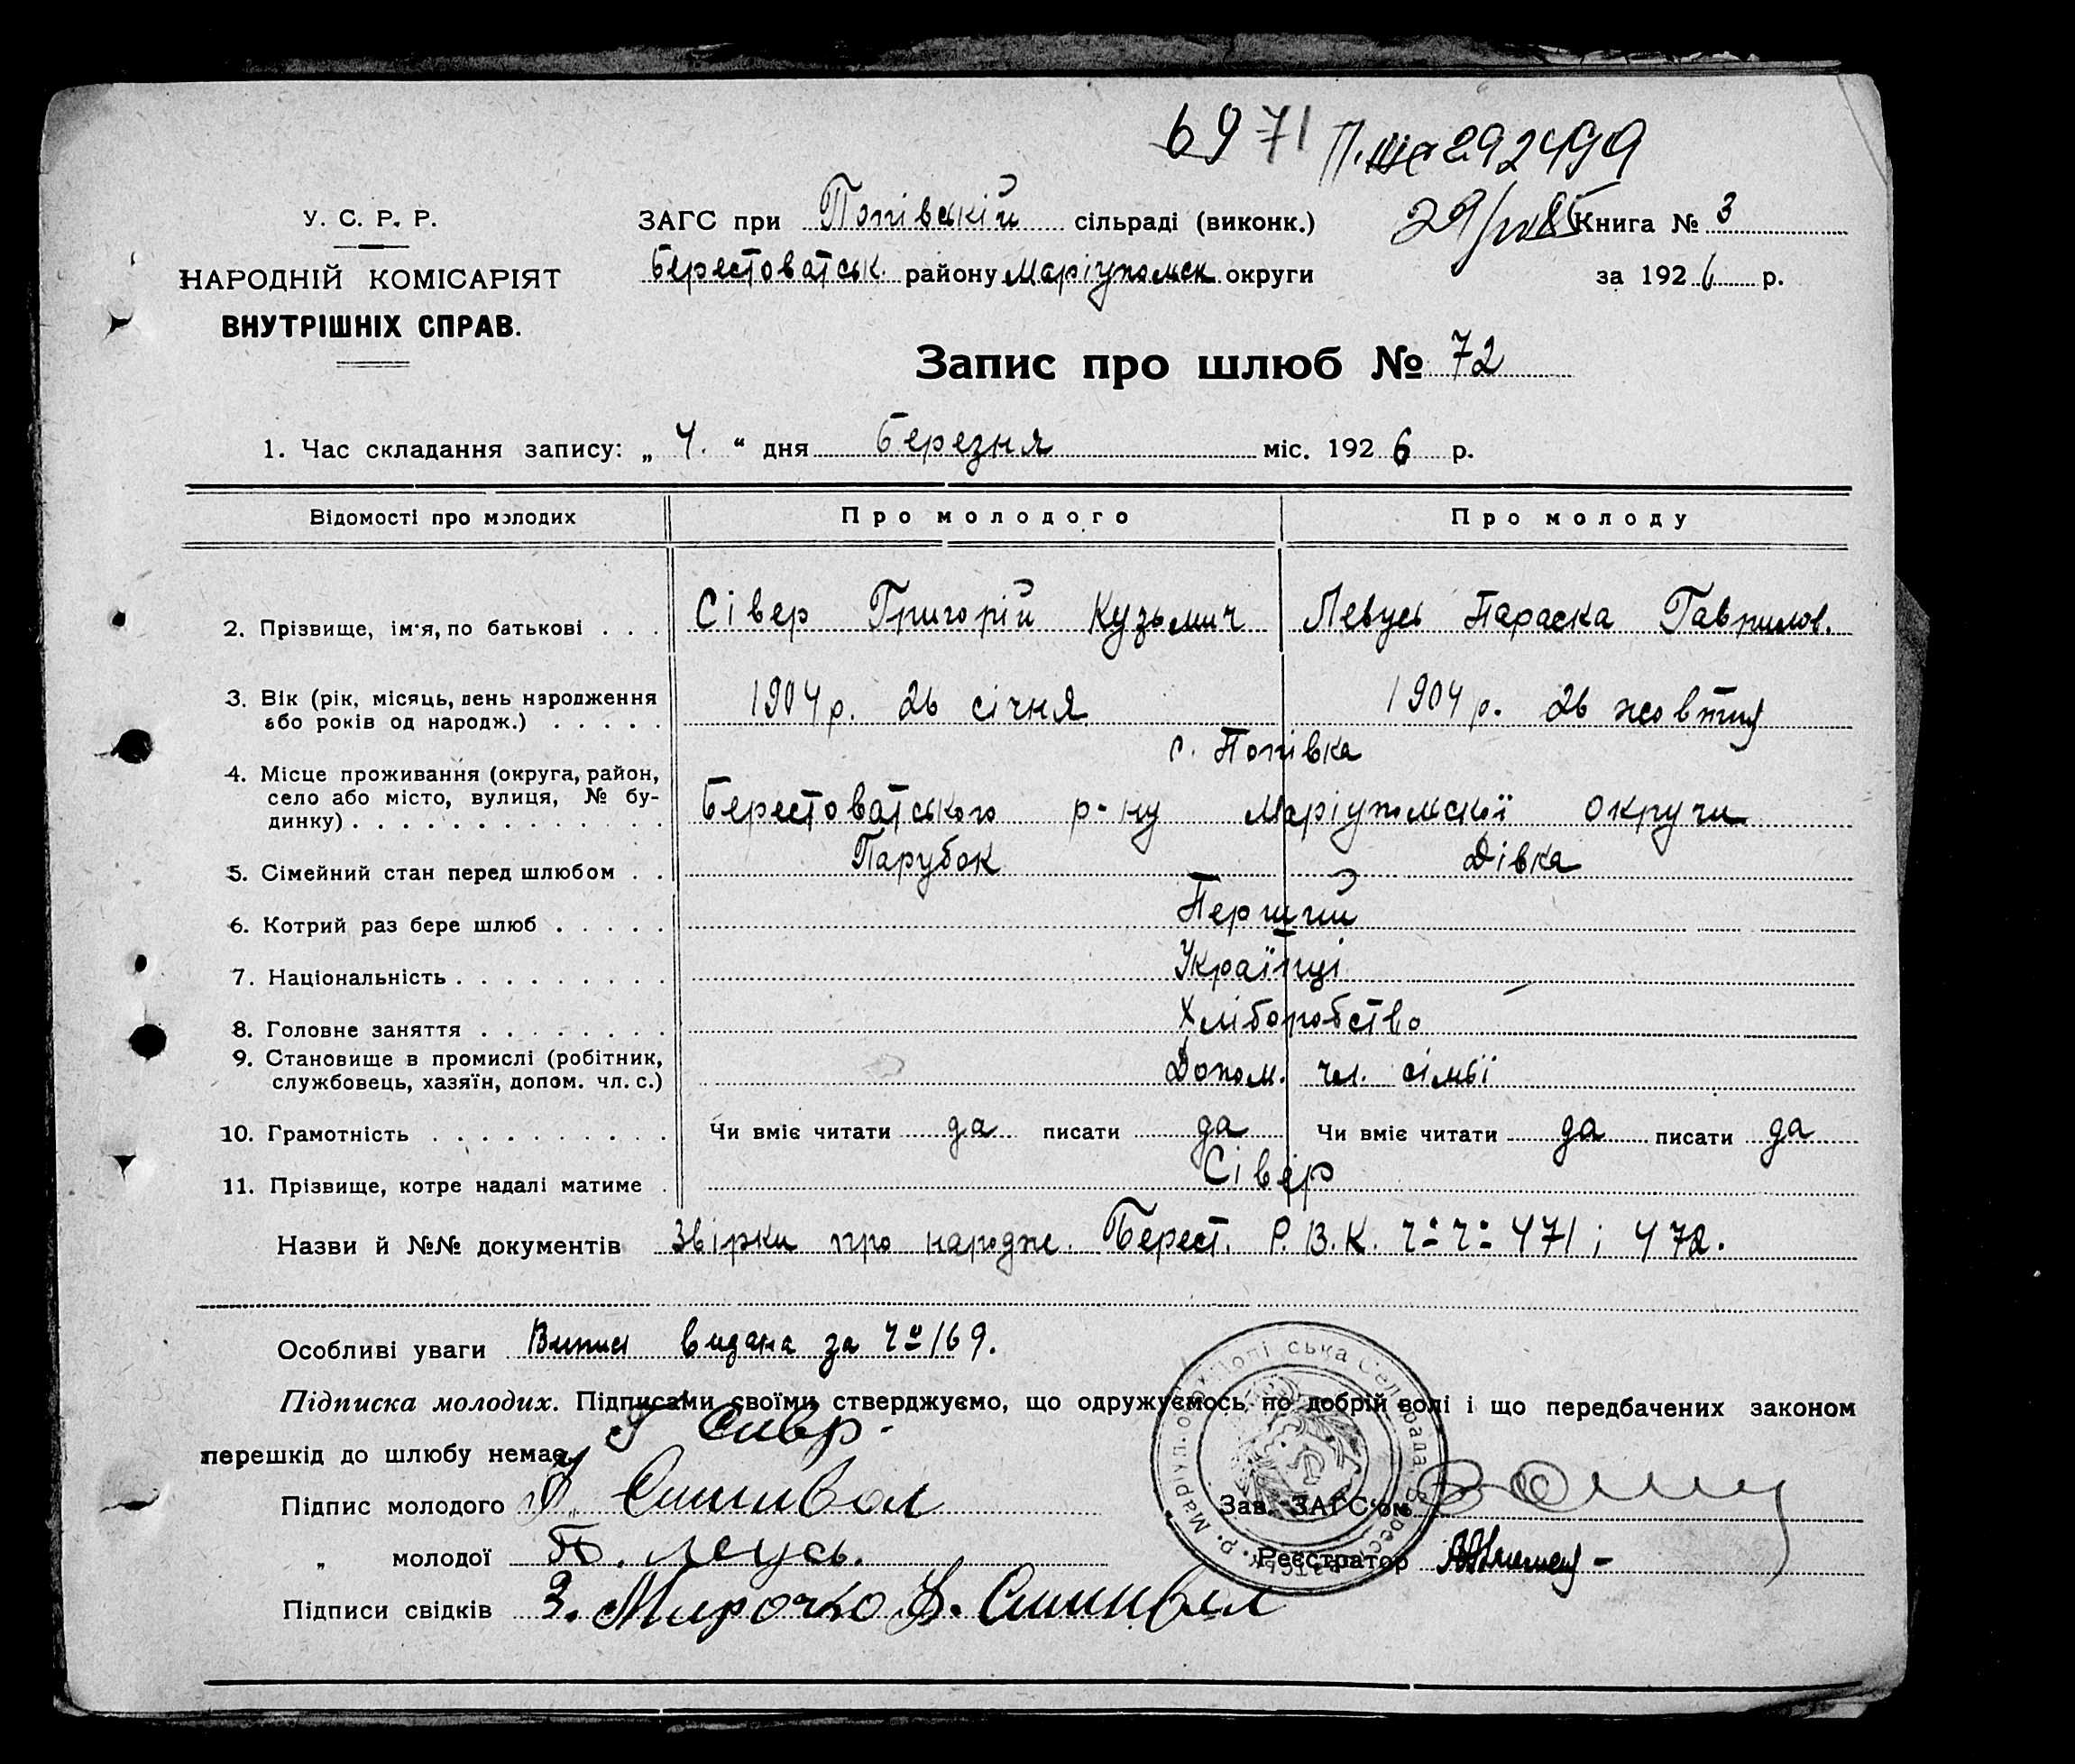 6971 292499
У. С. Р. Р.
НАРОДНІЙ КОМІСАРІЯТ
ВНУТРІШНІХ СПРАВ.
ЗАГС при Попівській сільраді (виконк.)
Берестоватськ. району Маріупольск округи
Книга № 3
за 1926 р.
Запис про шлюб № 72
1. Час складання запису: „ 4. “ дня Березня міс. 1926 р.
Відомості про молодих Про молодого Про молоду
2. Прізвище, ім'я, по батькові . . . Сівер Григорій Кузьмич Левусь Параска Гаврилов.
3. Вік (рік, місяць, день народження
або років од народж.) . . . . . 1904 р. 26 січня 1904 р. 26 жовтня
с. Попівка
4. Місце проживання (округа, район,
село або місто, вулиця, № бу-
динку) . . . . . . . . . . . . . Берестоватського р-ну Маріупольскої округи
5. Сімейний стан перед шлюбом . . Парубок Дівка
6. Котрий раз бере шлюб . . . . . Перший
7. Національність . . . . . . . . . Українці
8. Головне заняття . . . . . . . . Хліборобство
9. Становище в промислі (робітник,
службовець, хазяїн, допом. чл. с.) Допом. чл. сімьї
10. Грамотність . . . . . . . . . . Чи вміє читати да писати да Чи вміє читати да писати да
11. Прізвище, котре надалі матиме . Сівер
Назви й №№ документів Звірки про народж. Берест. Р.В.К. ч-ч- 471; 472.
Особливі уваги Випись видана за ч- 169.
Підписка молодих. Підписами своїми стверджуємо, що одружуємось по добрій волі і що передбачених законом
перешкід до шлюбу немає. Г Сивр.
Підпис молодого
Зав. ЗАГС'ом
„ молодої П. леусь.
Реєстратор
Підписи свідків З. Мирочко